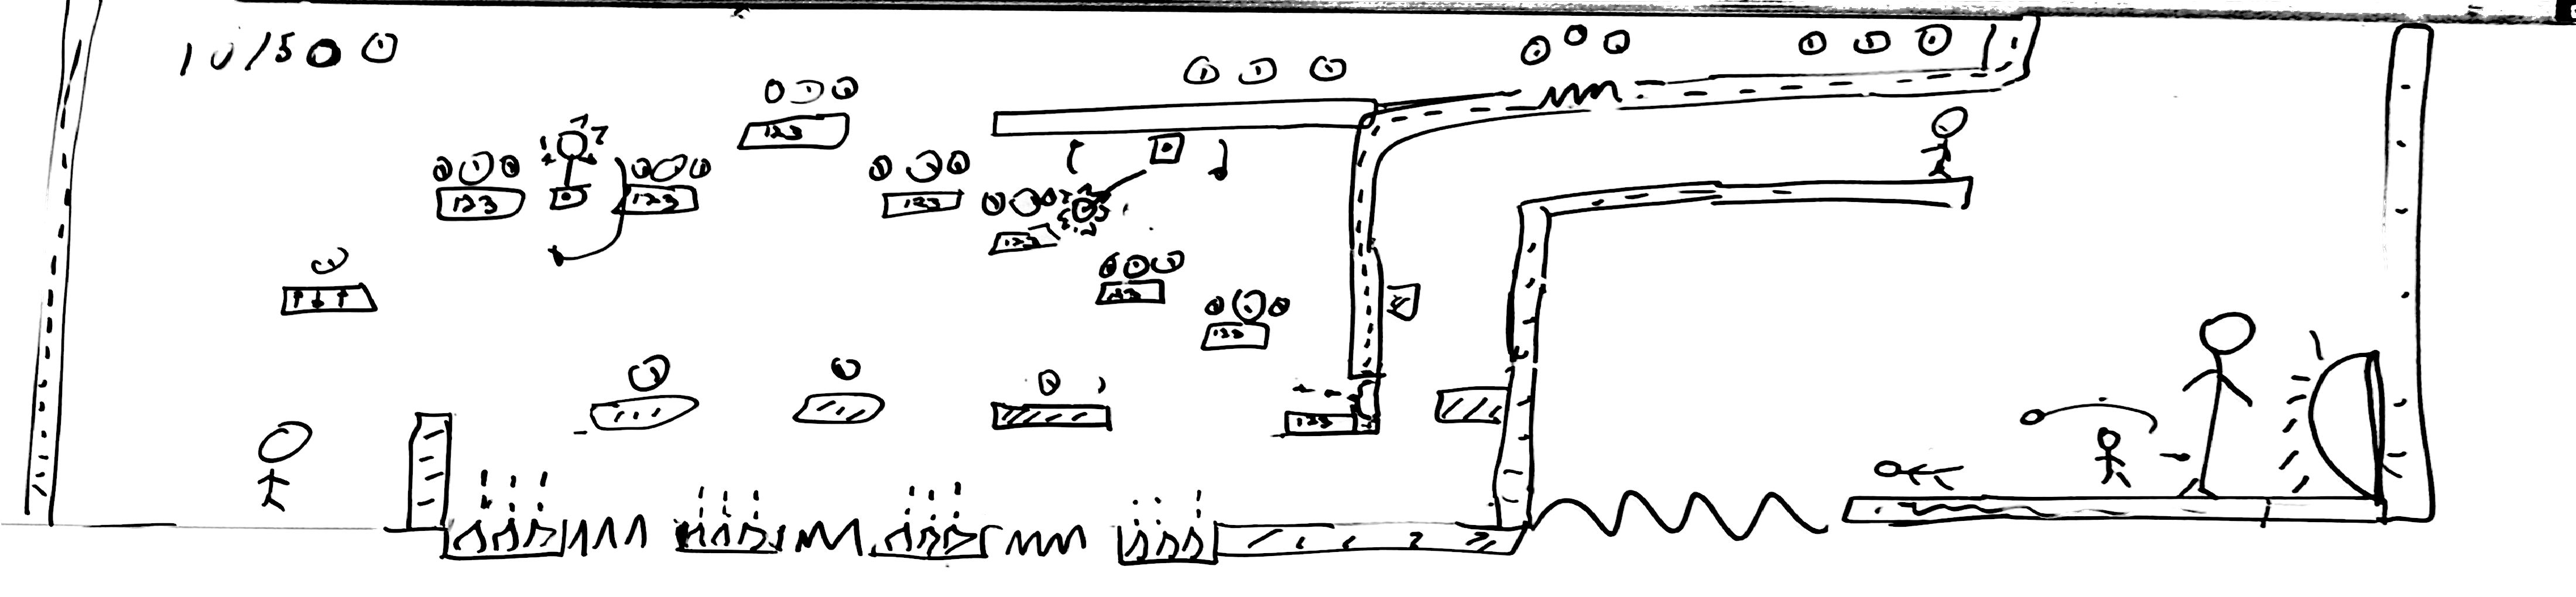 10/50
123
123
123
123
123
123
123
123